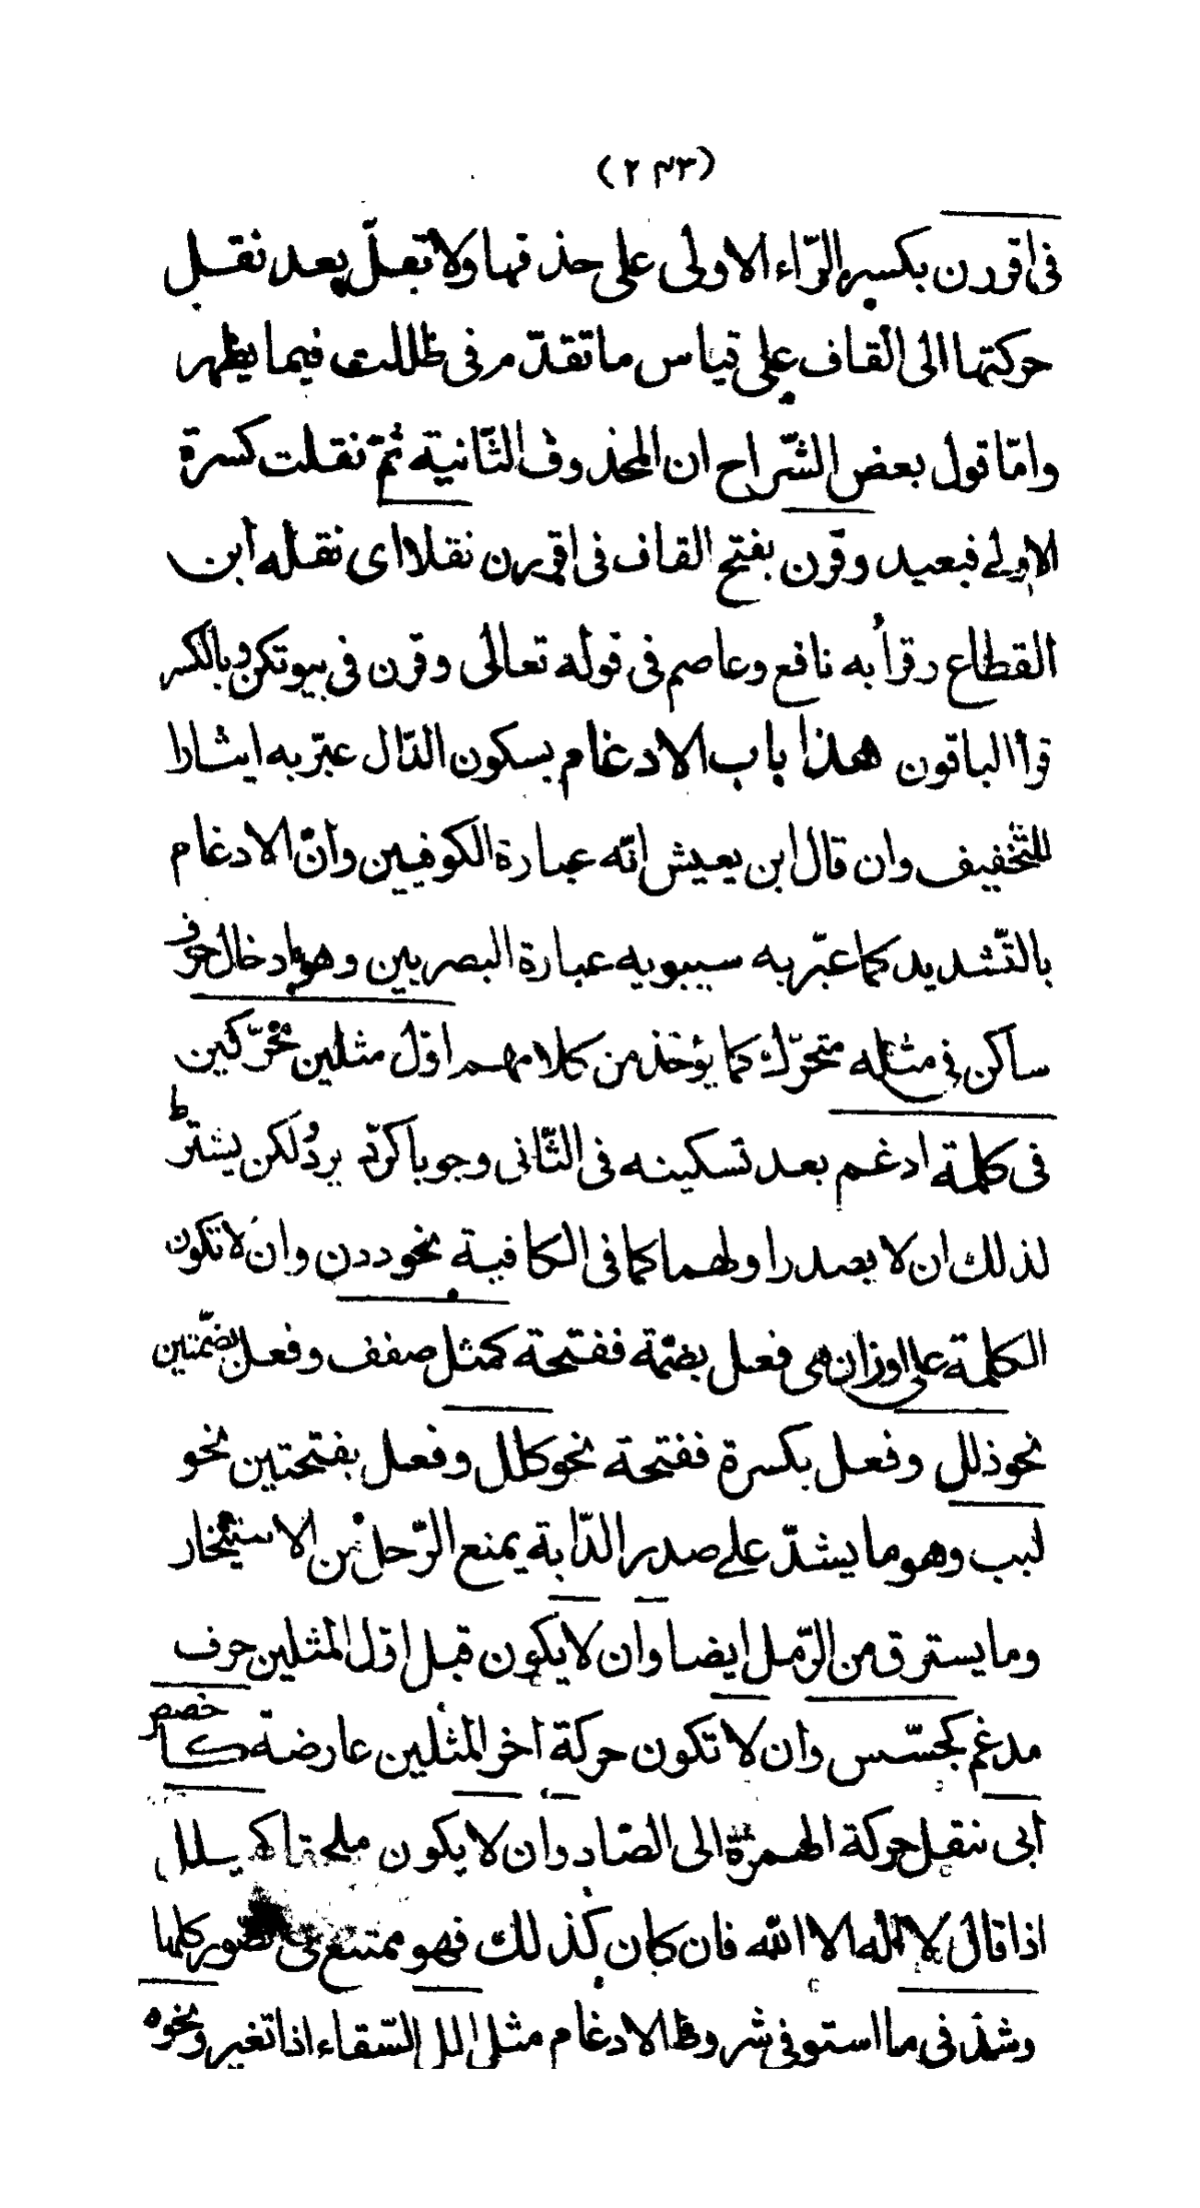 (٢٤٣)
فى اقررن بكسر الرّاء الاولى على حذفها ولا تعلّ بعد نقل
حركتها الى القاف على قياس ما تقدّم فى ظللت فيما يظهر
وامّا قول بعض الشّراح ان المحذوف الثّانية ثمّ نقلت كسرة
الاولى فبعيد وقرن بفتح القاف فى اقررن نقلا اى نقله ابن
القطاع وقرأ به نافع وعاصم فى قوله تعالى وقرن فى بيوتكن وبالكسر
قرأ الباقون هذا باب الادغام بسكون الدّال عبّر به ايثارا
للتّخفيف وان قال ابن يعيش انّه عبارة الكوفيين وانّ الادغام
بالتّشديد كما عبّر به سيبويه عبارة البصريين وهو ادخال حرف
ساكن فى مثله متحرّك كما يؤخذ من كلامهم اوّل مثلين محرّكين
فى كلمة ادغم بعد تسكينه فى الثّانى وجوبا كردّ يردُ لكن يشترط
لذلك ان لا يصدر اولهما كما فى الكافية نحو ددن وان لا تكون
الكلمة على اوزان هى فعل بضمّة ففتحة كمثل صفف وفعل بضمّتين
نحو ذلل وفعل بكسرة ففتحة نحو كلل وفعل بفتحتين نحو
لبب وهو ما يشدّ على صدر الدّابة يمنع الرّحل من الاستيخار
وما يسترق من الرّمل ايضا وان لا يكون قبل اوّل المثلين حرف
مدغم كجسّس وان لا تكون حركة اخر المثلين عارضة كاخصص
ابى بنقل حركة الهمزة الى الصّاد وان لا يكون ملحقا كهيلل
اذا قال لا اله الا الله فان كان كذلك فهو ممتنع فى الصّور كلها
وشذّ فى ما استوفى شروط الادغام مثل الل السّقاء اذا تغير ونحوه